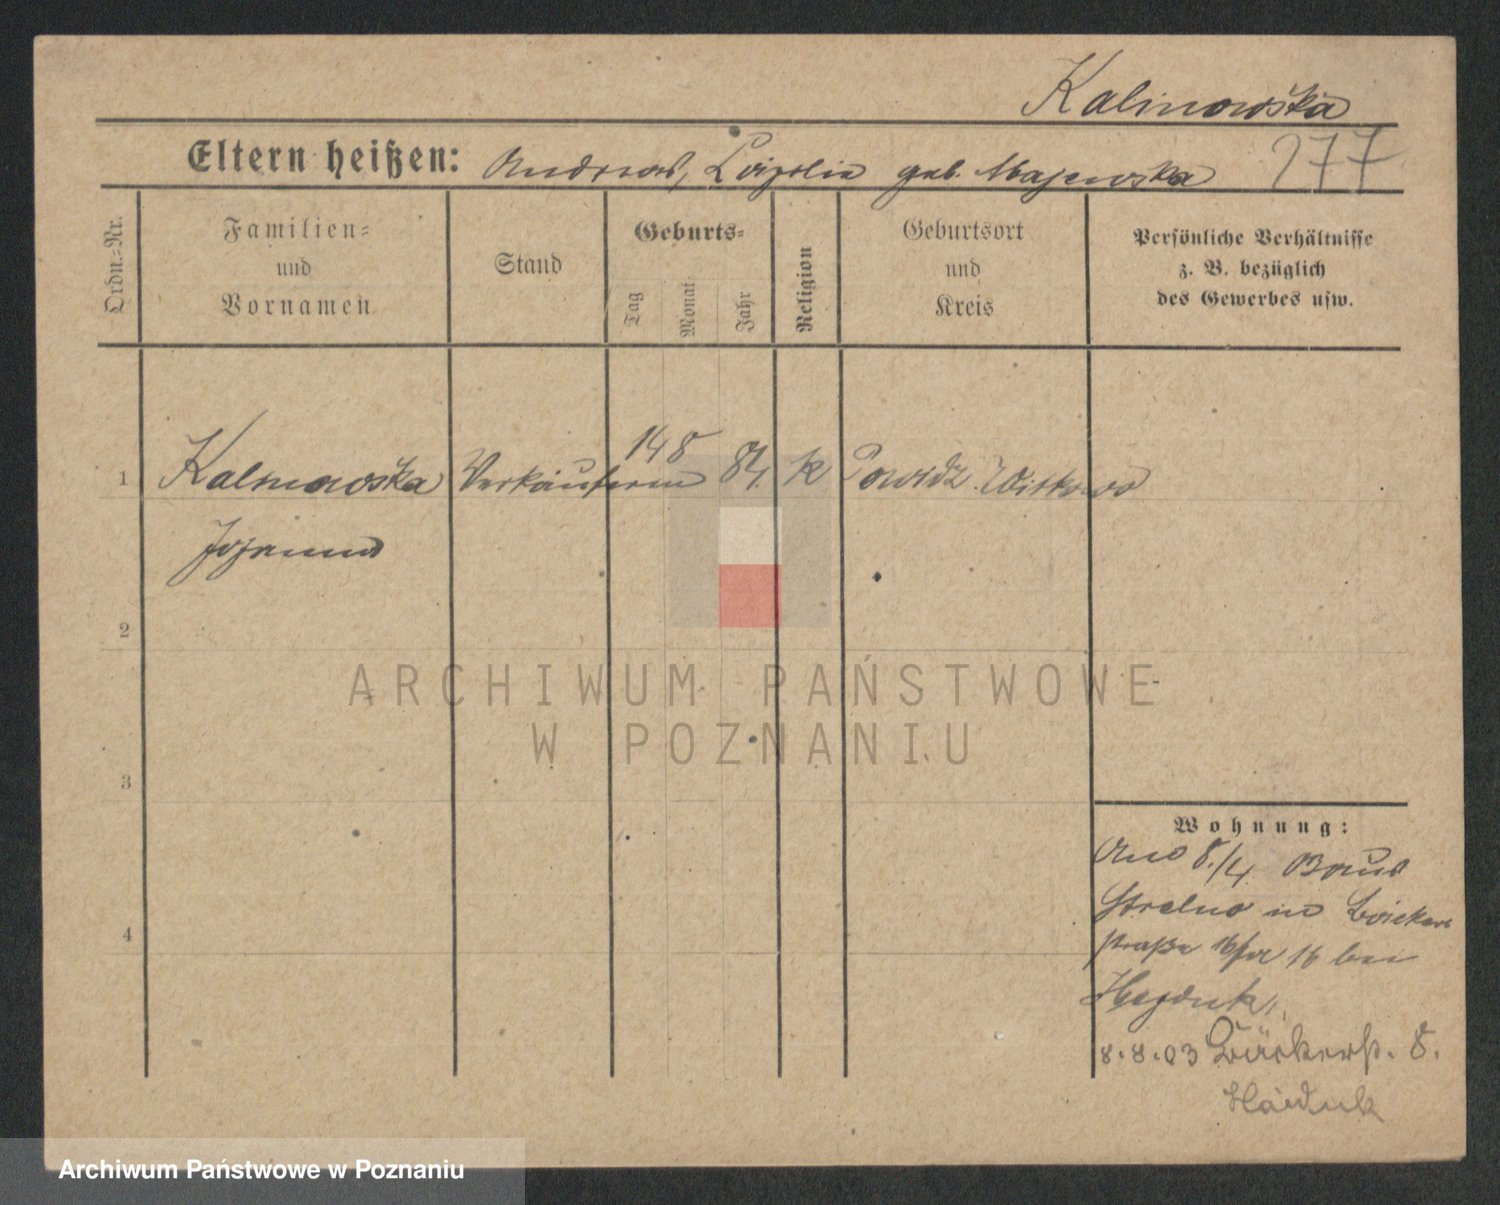 Kalinowska
Eltern heißen: Andreas, geb. Majewska 277
Ordn.-Nr.
Familien-
und
Vornamen
Stand
Geburts-
Tag
Monat
Jahr
Religion
Geburtsort
und
Kreis
Persönliche Verhältnisse
z. B. bezüglich
des Gewerbes usw.
1 Kalinowska Verkäuferin 14 5 84. k Powidz Witkowo
Johanna
2
3
4
ARCHIWUM PAŃSTWOWE
W POZNANIU
Wohnung:
8./4.
Strelno in Bäcker
straße 16 bei
Hejduk,
8.8.03 Bäckerst. 8.
Haiduk
Archiwum Państwowe w Poznaniu